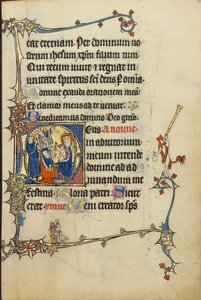 tat eternam. Per dominum no
strum ihesum xpm filium tuum
Qui tecum uiuit et regnat in
unitate spiritus sci deus
domine exaudi orationem meam
Et clamor meus ad te ueniat
Benedicamus domino Deo gras
Deus
in adiutorium
meum intende
domine ad ad
iuuandum me
festina Gloria patri Sicut
erat Veni creator sps